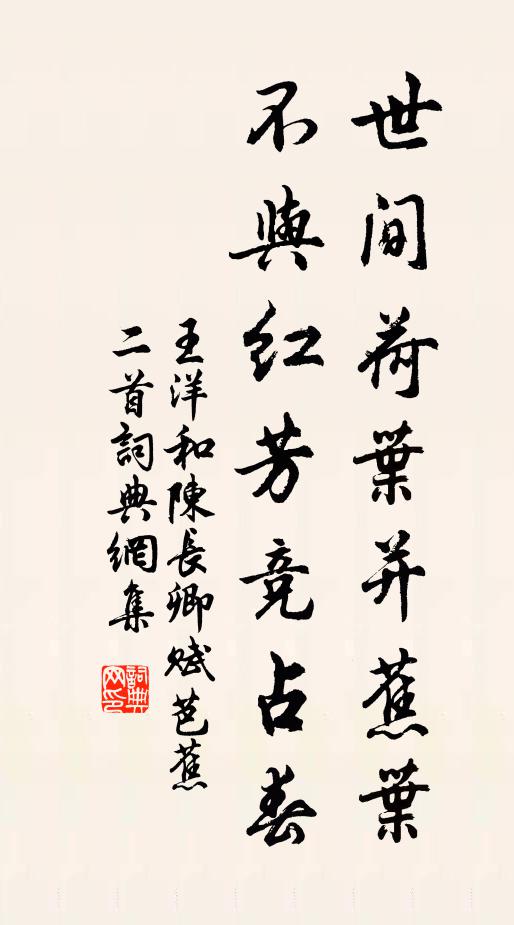 世間荷葉并蕉葉
不與紅芳竞占春
王洋和陳長卿賦芭蕉
二首詞典網集
詞典
网印